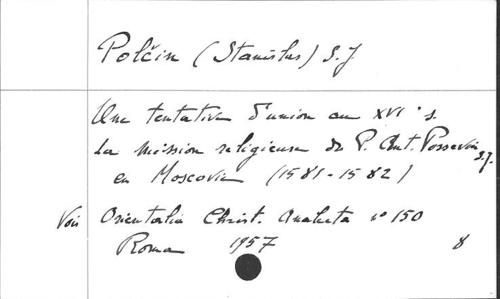 Polčin (Stanislas) S.J
Une tentative d'union au XVI's.
La mission religieuse du P. Ant. Possevin S.J.
en Moscovie (1581-1582)
Voir Orientalia Christ. Analecta n° 150
Roma 1957 8